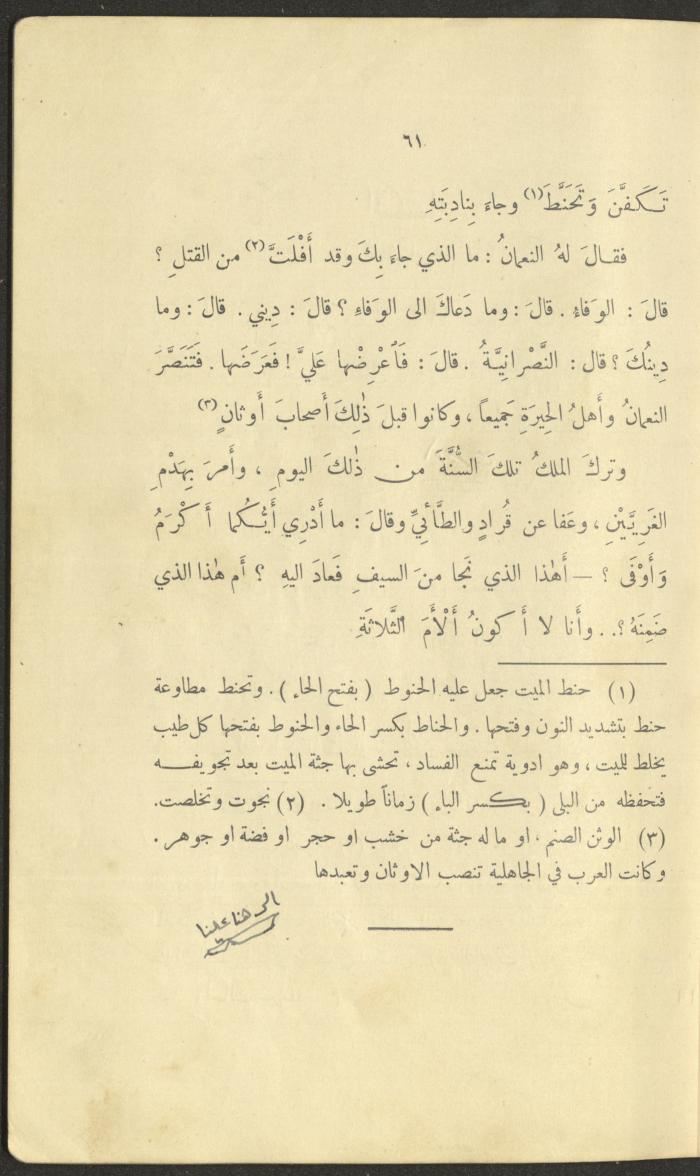 ٦١
تَكَفَّنَ وَتَحَنَّطَ(١) وجاءَ بِنادِبَتِهِ
فقالَ لهُ النعمانُ : ما الذي جاءَ بِكَ وقد أَفْلَتَّ(٢) من القتلِ ؟
قالَ : الوَفاءُ . قالَ : وما دَعاكَ الى الوَفاءِ ؟ قالَ : دِيني . قالَ : وما
دِينُكَ ؟ قال : النَّصْرانِيَّةُ . قالَ : فَٱعْرِضْها عَليَّ ! فَعَرَضَها . فَتَنَصَّرَ
النعمانُ وأَهلُ الحِيرَةِ جَميعاً ، وكانوا قبلَ ذٰلِكَ أَصحابَ أَوثانٍ(٣)
وتركَ الملكُ تلكَ السُّنَّةَ من ذٰلكَ اليومِ ، وأَمرَ بِهَدْمِ
الغَرِيَّيْنِ ، وعَفا عن قُرادٍ والطَّائيِّ وقالَ : ما أَدْرِي أَيُّكما أَكْرَمُ
وَأَوْفَى ؟ — أَهٰذا الذي نَجا منَ السيفِ فَعادَ اليهِ ؟ أَم هٰذا الذي
ضَمِنَهُ ؟.. وأَنا لا أَكونُ أَلْأَمَ الثَّلاثَةِ
(١) حنط الميت جعل عليه الحنوط ( بفتح الحاء ) . وتحنط مطاوعة
حنط بتشديد النون وفتحها . والحناط بكسر الحاء والحنوط بفتحها كل طيب
يخلط للميت ، وهو ادوية تمنع الفساد ، تحشى بها جثة الميت بعد تجويفه
فتحفظه من البلى ( بكسر الباء ) زماناً طويلا . (٢) نجوت وتخلصت.
(٣) الوثن الصنم ، او ما له جثة من خشب او حجر او فضة او جوهر .
وكانت العرب في الجاهلية تنصب الاوثان وتعبدها
الى هنا علينا